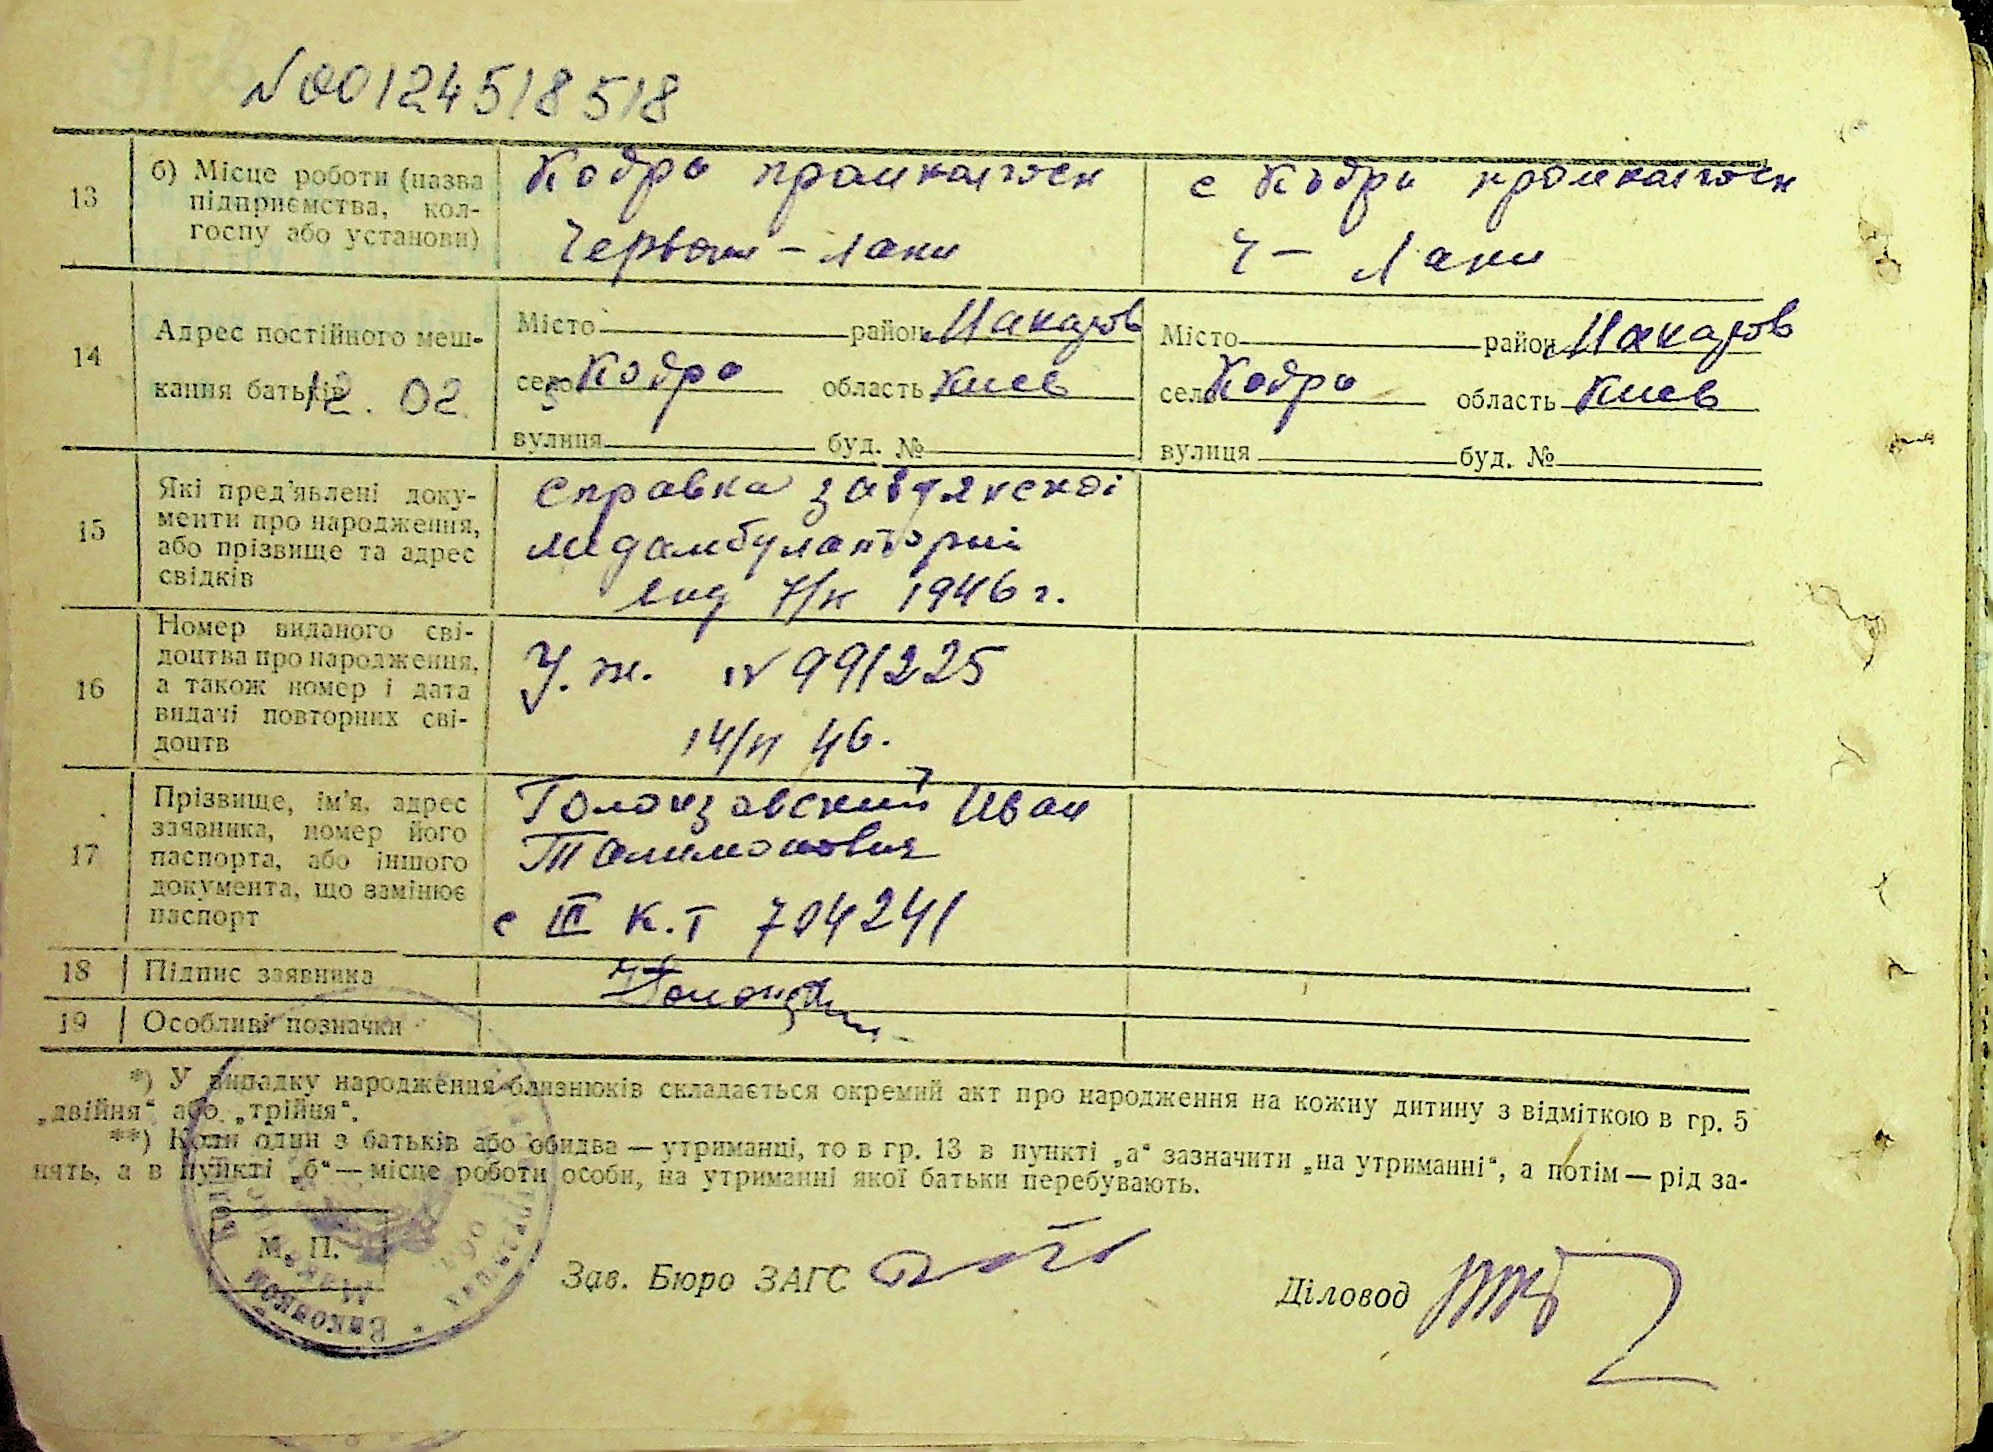 N 00124518518
13
б) Місце роботи (назва підприємства, кол-
госпу або установи)
Кодра промколгосп
Червони - лани
с Кодра промколгосп
Ч - Лани
14
Адрес постійного меш-
кання батьків
12. 02
Місто район Макаров
село Кодра область Киев
вулиця буд. №
Місто район Макаров
село Кодра область Киев
вулиця буд. №
15
Які пред'явлені доку-
менти про народження,
або прізвище та адрес
свідків
справка
медамбулатории
1946 г.
16
Номер виданого сві-
доцтва про народження,
а також номер і дата
видачі повторних сві-
доцтв
У. ж. N 991225
14/II 46.
17
Прізвище, ім'я, адрес
заявника, номер його
паспорта, або іншого
документа, що замінює
паспорт
Иван
с III К.Т 704241
18 Підпис заявника
19 Особливі позначки
*) У випадку народження близнюків складається окремий акт про народження на кожну дитину з відміткою в гр. 5
„двійня“ або „трійня“.
**) Коли один з батьків або обидва — утриманці, то в гр. 13 в пункті „а“ зазначити „на утриманні“, а потім — рід за-
нять, а в пункті „б“ — місце роботи особи, на утриманні якої батьки перебувають.
М. П.
Зав. Бюро ЗАГС
Діловод